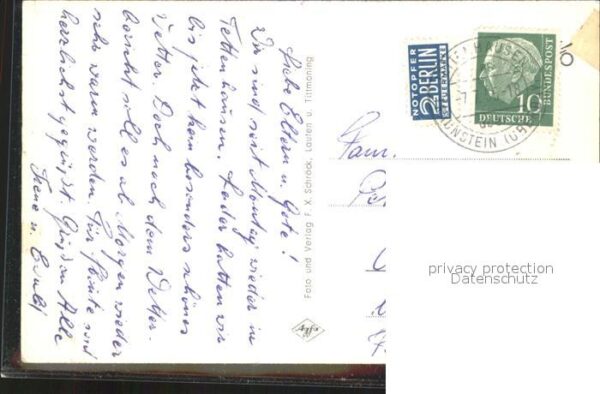 Liebe Eltern u. Gote!
Wir sind seit Montag wieder in
Tettenhausen. Leider hatten wir
bis jetzt kein besonders schönes
Wetter. Doch nach dem Wetter-
bericht soll es ab Morgen wieder
sehr warm werden. Für heute seid
herzlichst gegrüßt. Gruß an Alle
u.
Foto und Verlag F. X. Schröck, Laufen u. Tittmoning
NOTOPFER
2 BERLIN
STEUERMARKE
10
DEUTSCHE
BUNDESPOST
Fam.
privacy protection
Datenschutz